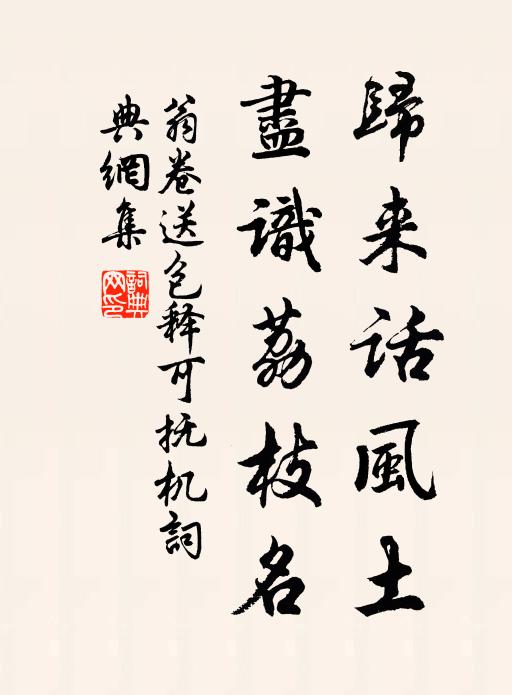 歸来话風土
盡識荔枝名
翁卷送包释可抚机詞
典網集
詞典网印